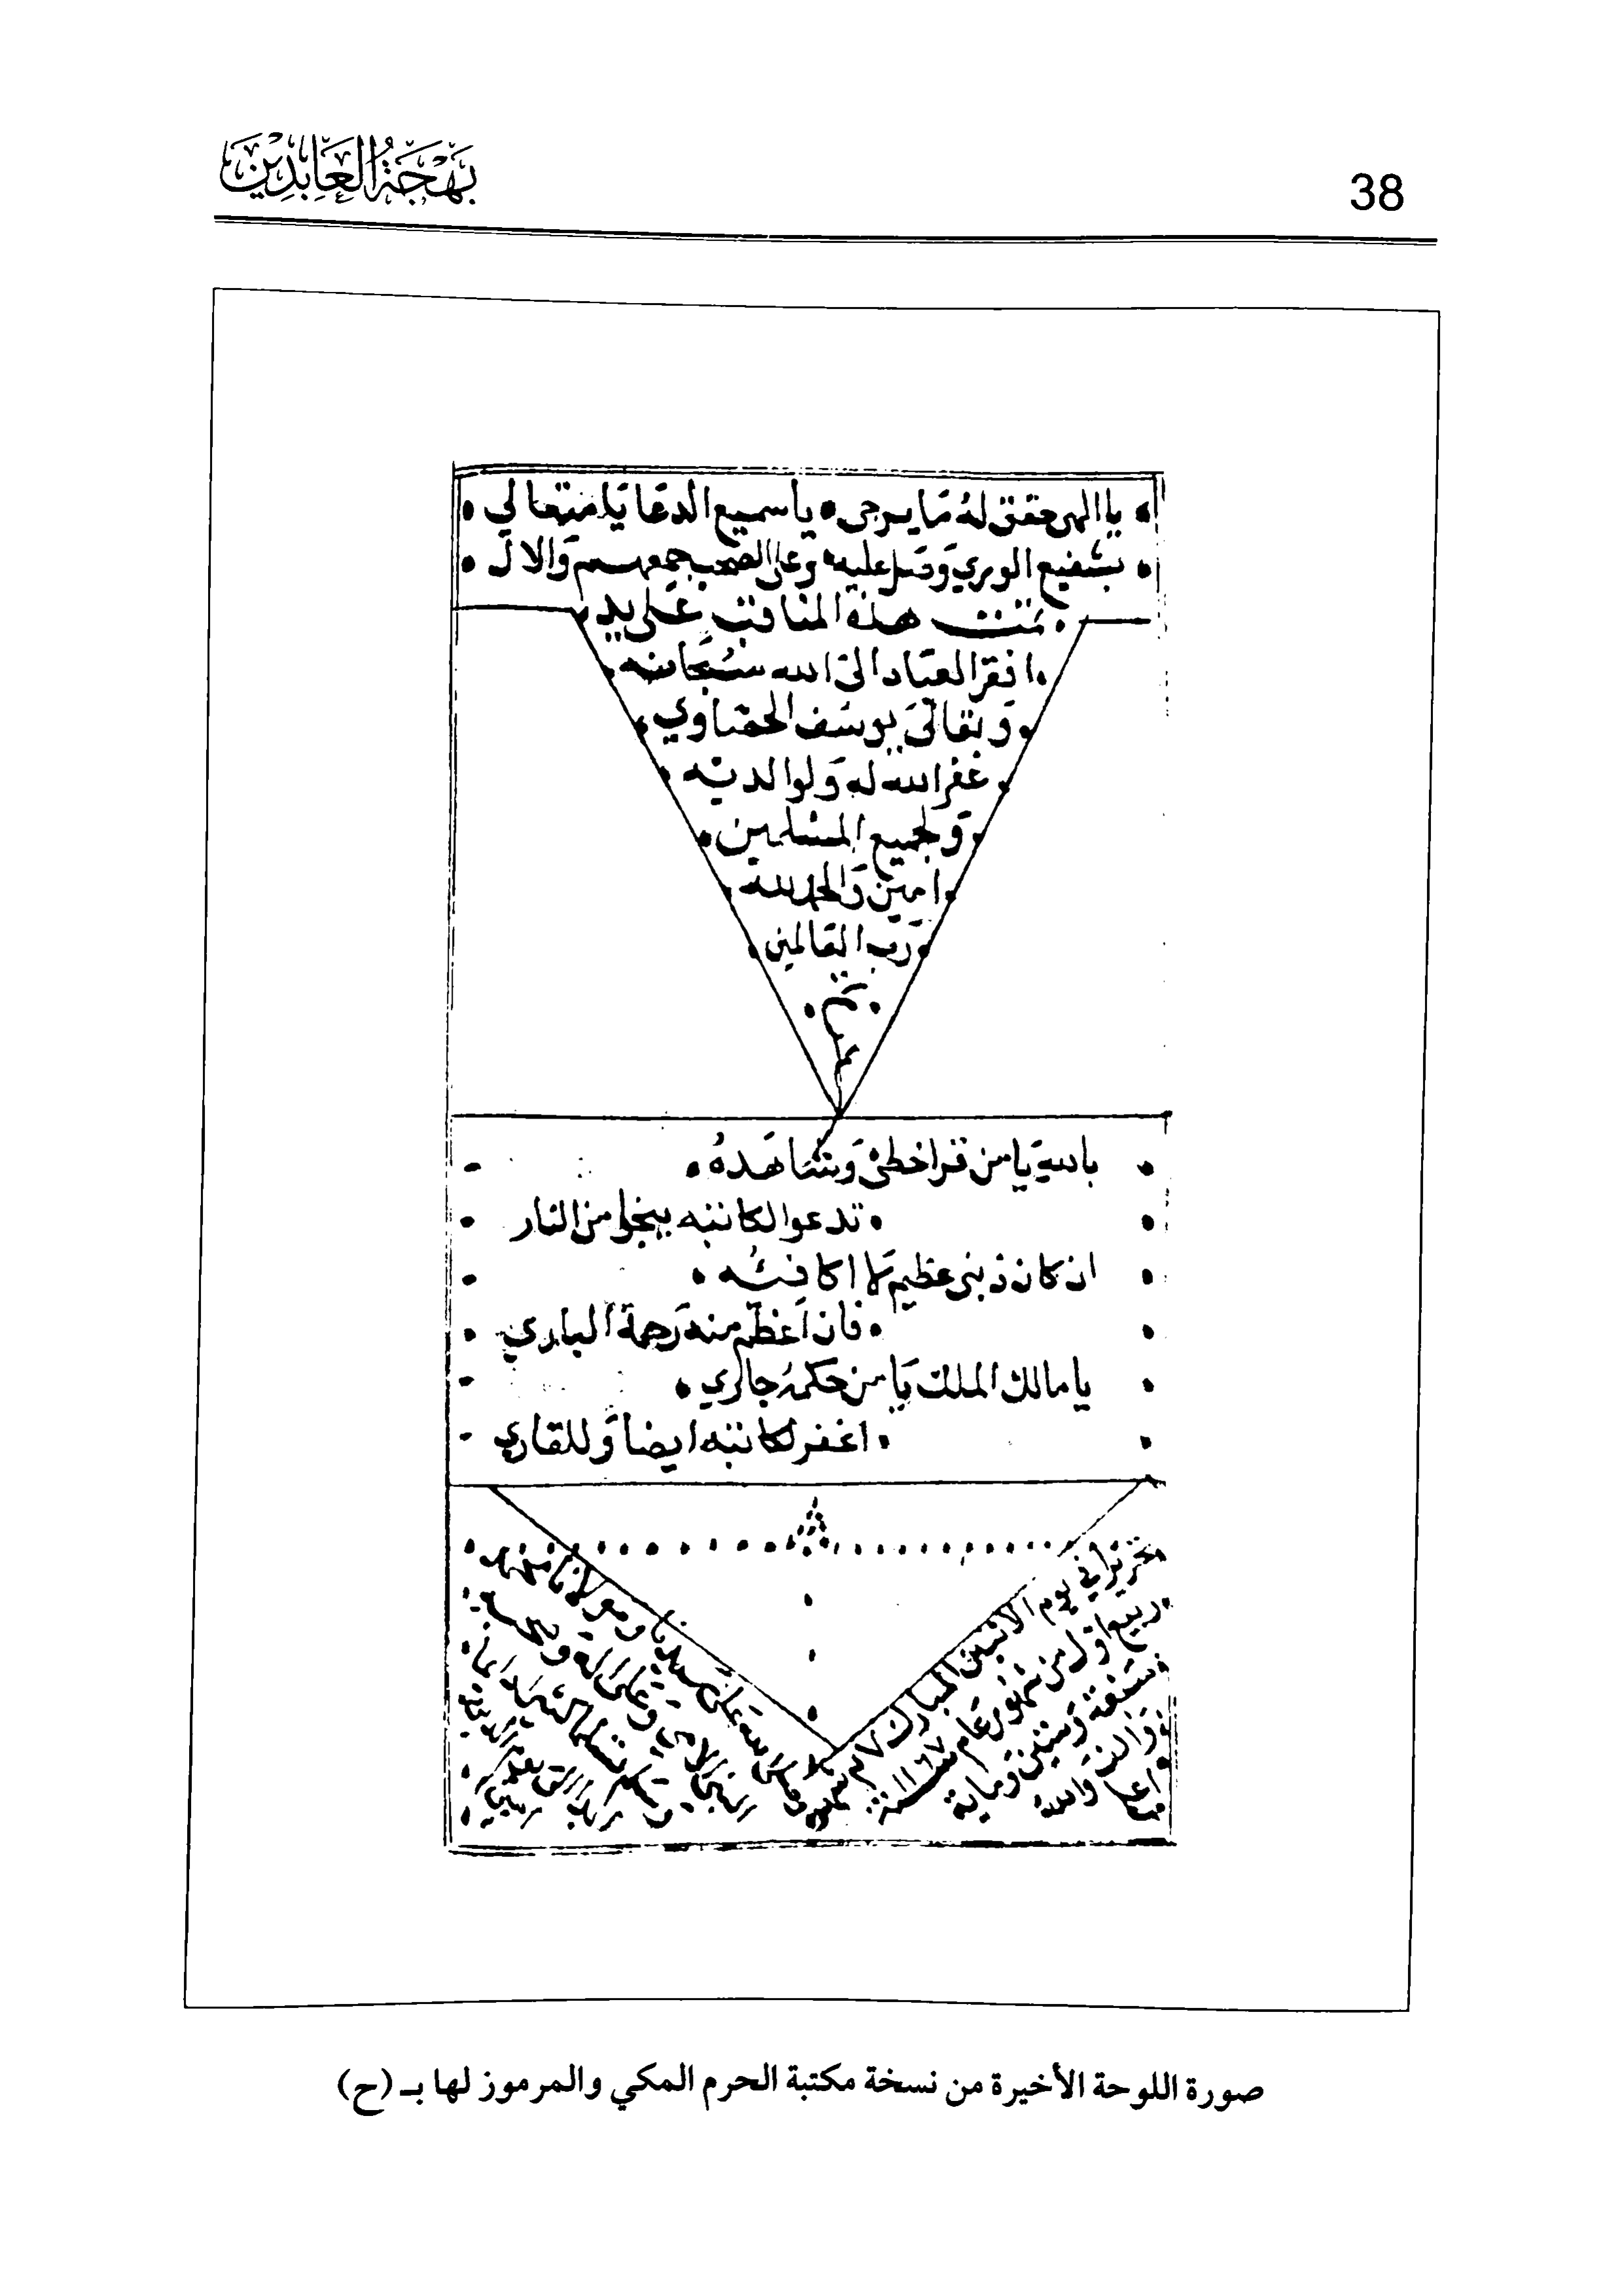 38
بَهْجَةُ العَابِدِيْن
يا الهي حقق له مَا يرجى ٠ يا سميع الدعَا يَا متعالي ٠
بشفيع الوري وَصَل عليه ٠ وعلى الصحب جمعهم وَالال ٠
تمت هذه المناقب عَلى يد
افقر العبَاد الىَ الله سُبحَانه
وَتعَالىَ يوسَف الحفنَاوي
غفر الله له وَلوالديْه
وَلجميع المسْلمين
امين وَالحمد لله
رَب العَالمين
تم
باللهِ يَا من قرا خطىْ وَشَاهَدهُ ٠
٠ تدعوا لكاتبه ينجوا من النار
ان كان ذنبى عظيم لا اكافئه ٠
٠ فان اَعْظَم منه رَحمة الباري
يا مالك الملك يَا من حكمهُ جاري ٠
٠ اغفر لكاتبه ايضاً وَللقاري
تحريرًا في يوم الاثنين المبارك ٧
ربيع اول من شهور عَام سنة ١١٦٧
سَبعَة وَستين وَماية
وَالف وَالله
اعلم
وصلى الله عَلى سيدنا ومولانا محمد
النبي الامي وَعَلى اله وصحبه
وَسلم تسليما كثيرا دَائما
رب العالمين
امين
صورة اللوحة الأخيرة من نسخة مكتبة الحرم المكي والمرموز لها بـ (ح)